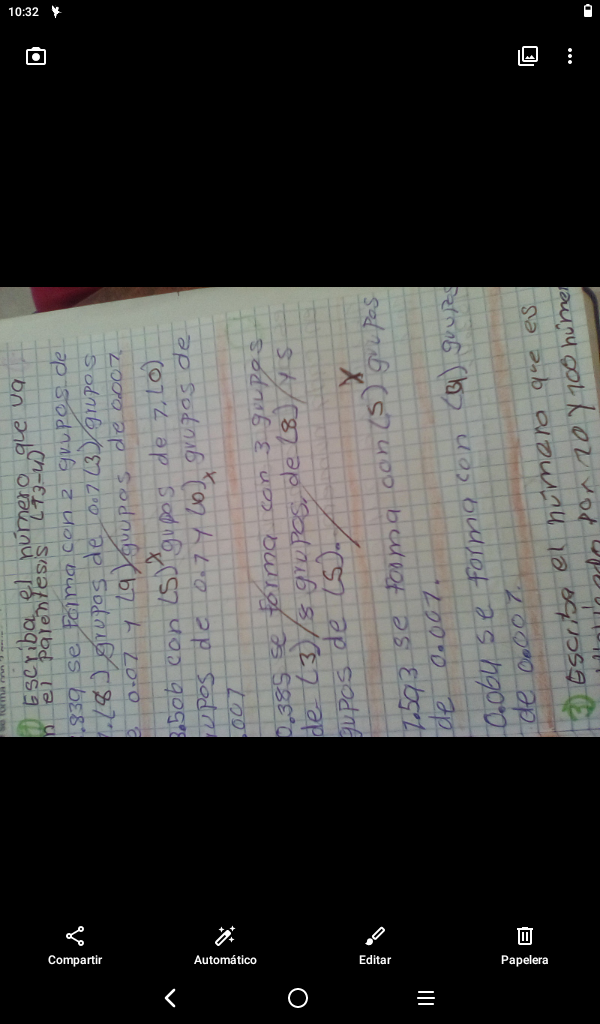 10:32
Escriba el número que va
n el paréntesis (T3-4)
.839 se forma con 2 grupos de
1.(8) grupos de 0.1 (3) grupos
e 0.01 y (9) grupos de 0.001.
3.506 con (5) grupos de 1.(0)
rupos de 0.1 y (6) grupos de
.001
0.385 se forma con 3 grupos
de (3) / 8 grupos de (8) / y 5
grupos de (5).
1.593 se forma con (5) grupos
de 0.001.
0.064 se forma con (4) grupos
de 0.001.
3) Escriba el número que es
por 10 y 100 númer
Compartir
Automático
Editar
Papelera